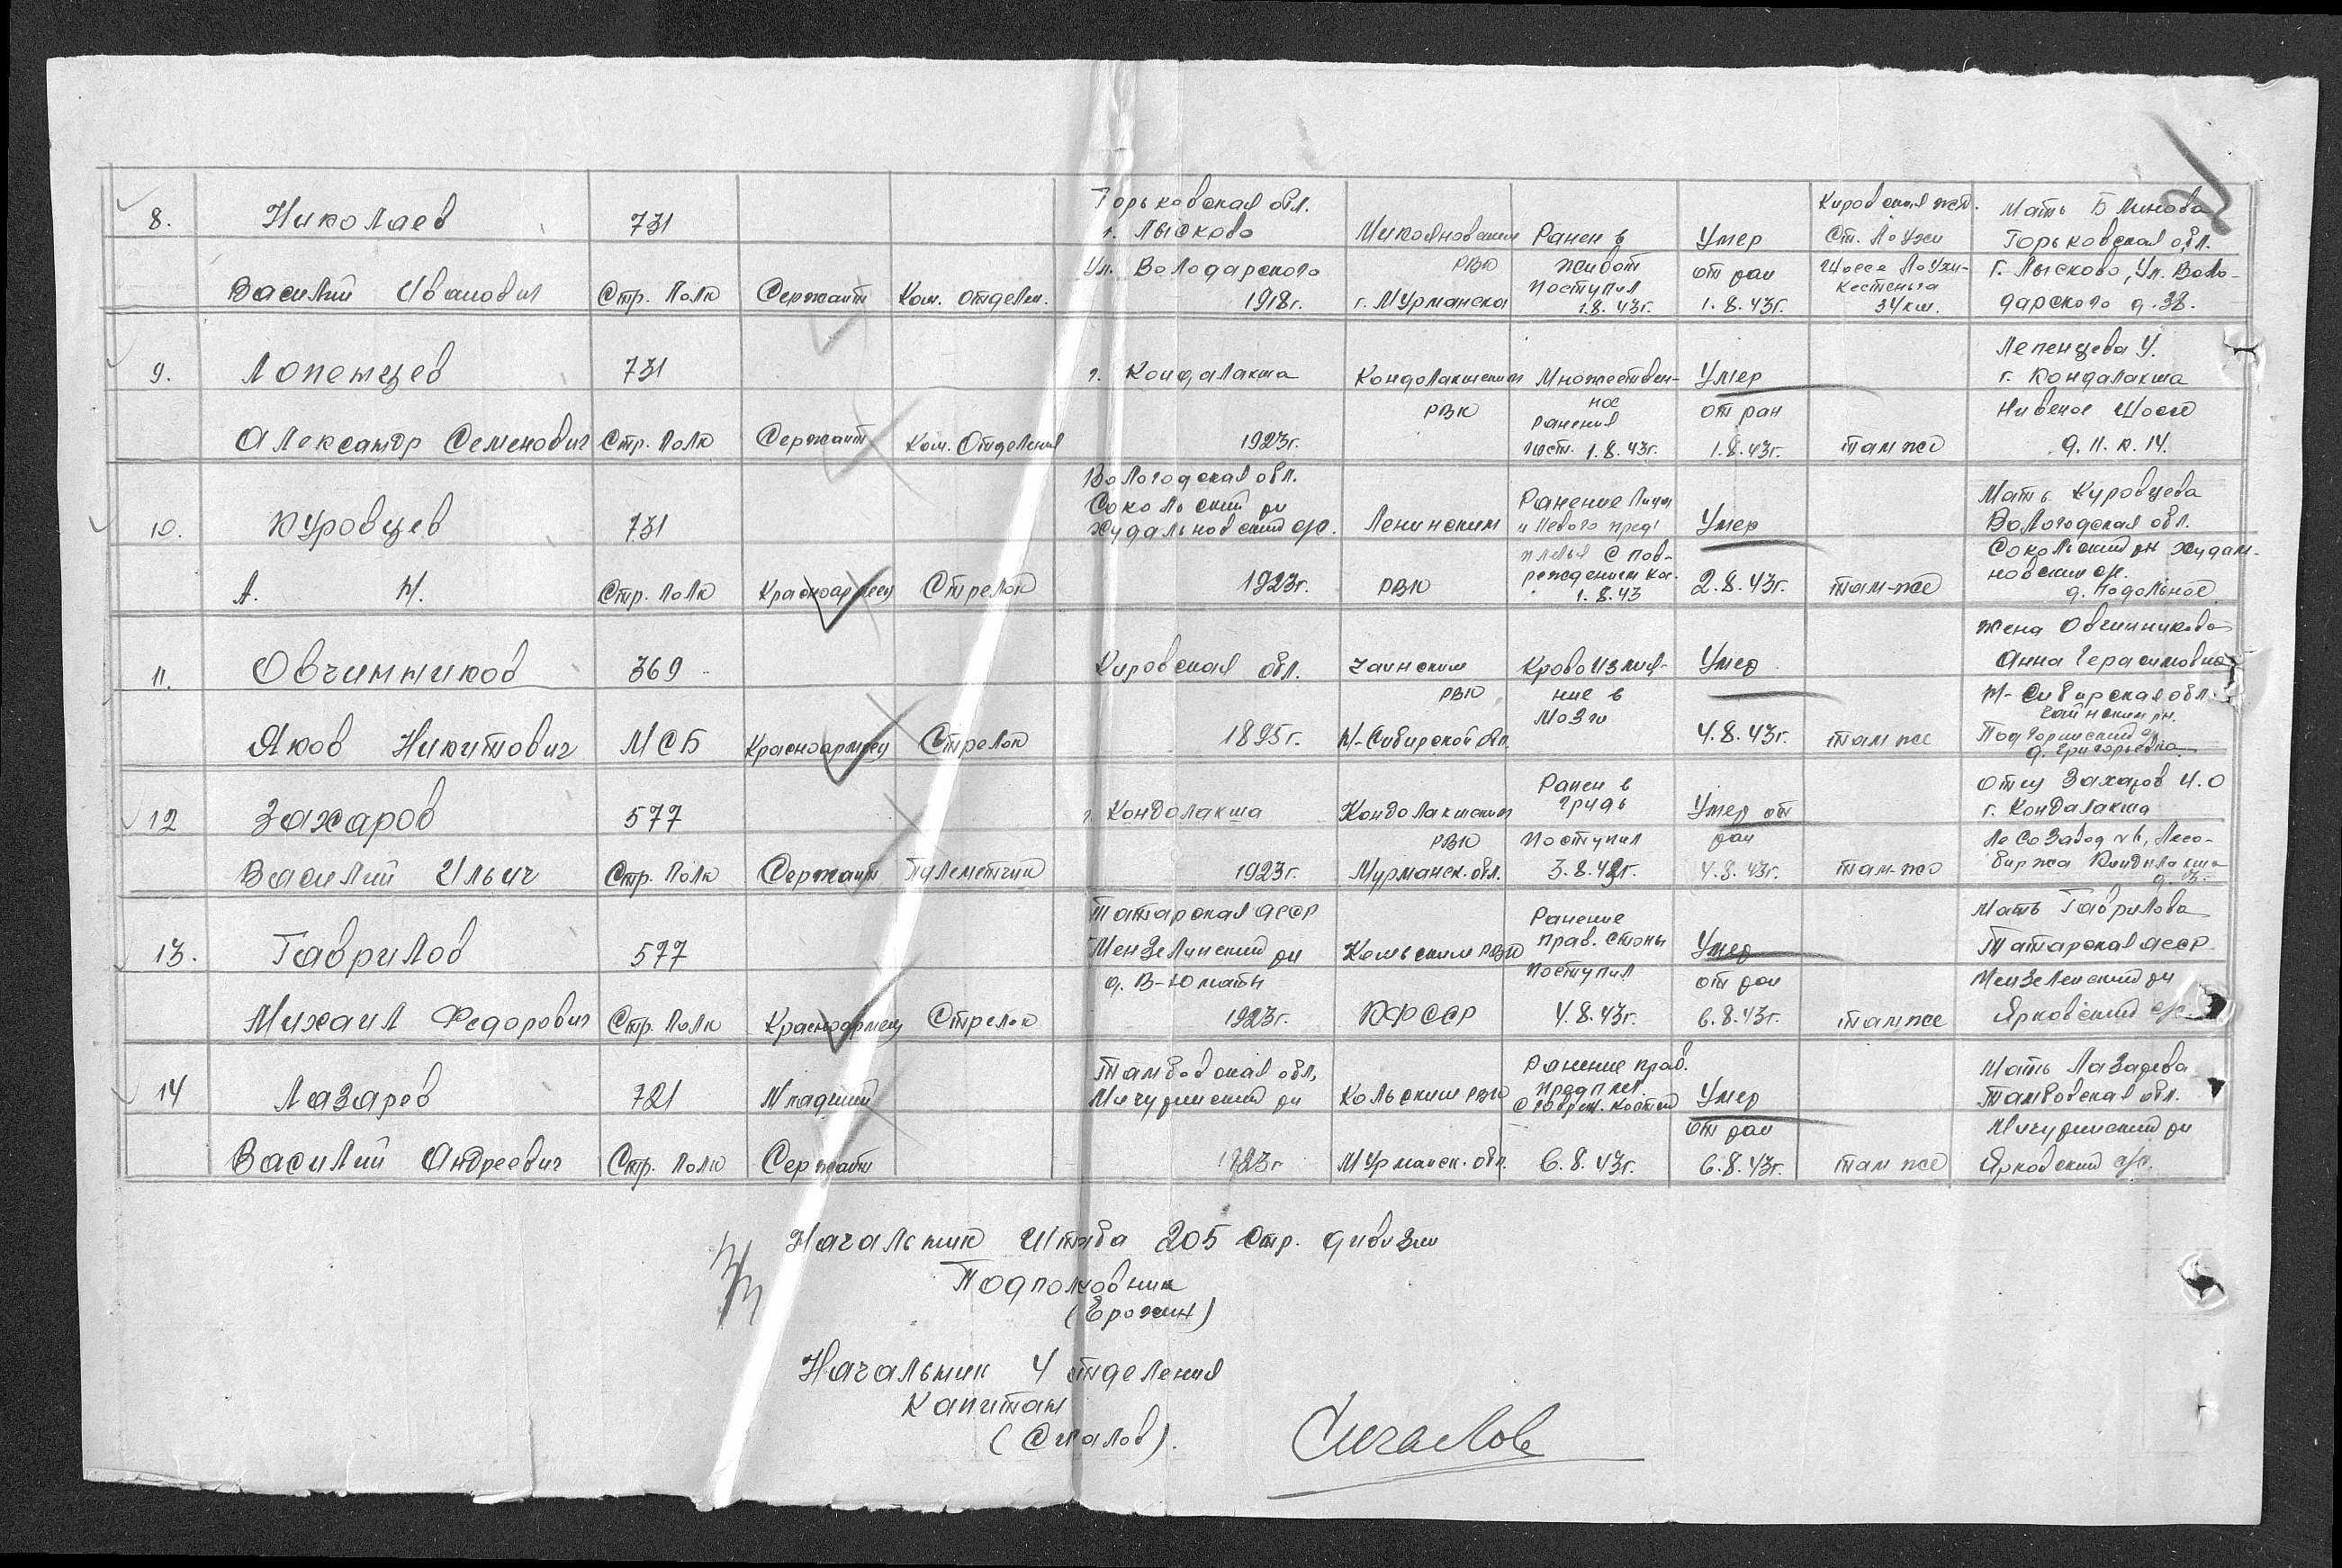 8. Николаев 731
Василий Иванович Стр. Полк Сержант Ком. отделен.
Горьковская обл.
г. Лысково
Ул. Володарского
1918г.
Микояновским
РВК
г. Мурманска
Ранен в
живот
Поступил
1.8.43г.
Умер
от ран
1.8.43г.
Кировская жел.
Ст. Лоухи
Шоссе Лоухи-
Кестеньга
34 км.
Мать Блинова
Горьковская обл.
г. Лысково, Ул. Воло-
дарского д. 38.
9. Лопенцев 731
Александр Семенович Стр. Полк Сержант Ком. Отделения
г. Кондалакша
1923г.
Кондолакшским
РВК
Множествен-
ное
ранения
пост. 1.8.43г.
Умер
от ран
1.8.43г.
там же
Лепенцева У.
г. Кондалакша
Нивское Шоссе
д. 11. к. 14.
10. Куровцев 731
А. Н. Стр. Полк Красноармеец Стрелок
Вологодская обл.
Сокольский рн
жудальновский с/с.
1923г.
Ленинским
РВК
Ранение Лица
и левого пред-
плечья с пов-
реждением кос.
1.8.43
Умер
2.8.43г.
там-же
Мать Куровцева
Вологодская обл.
Сокольский рн жудам-
новский с/с.
д. Подольное
11. Овчинников 369
Яков Никитович МСБ Красноармеец Стрелок
Кировская обл.
1895г.
Чаинским
РВК
Н-Сибирской обл.
Кровоизлия-
ние в
Мозги
Умер
4.8.43г.
там же
жена Овчинникова
Анна Герасимовна
Н-Сибирская обл.
Чаинский рн.
Подгоринский с/с
д. Григорьевка
12 Захаров 577
Василий Ильич Стр. Полк Сержант Пулеметчик
г. Кондолакша
1923г.
Кондолакшским
РВК
Мурманск. обл.
Ранен в
грудь
Поступил
3.8.43г.
Умер от
ран
4.8.43г.
там-же
Отец Захаров И.О
г. Кондалакша
Лесозавод №6, Лесо-
биржа Кондалакша
д. 3.
13. Гаврилов 577
Михаил Федорович Стр. Полк Красноармеец Стрелок
Татарская АССР
Мензелинский рн
д. В-Юшады
1923г.
Кемьским РВК
КФССР
Ранение
прав. стопы
поступил
4.8.43г.
Умер
от ран
6.8.43г.
там же
Мать Гаврилова
Татарская АССР
Мензеленский рн
Ярковский с/с.
14 Лазарев 721 Младший
Василий Андреевич Стр. Полк Сержант
Тамбовская обл,
Мичуринский рн
1923г
Кольским РВК
Мурманск. обл.
Ранение прав.
предплеч
с повреж. костей
6.8.43г.
Умер
от ран
6.8.43г.
там же
Мать Лазарева
Тамбовская обл.
Мичуринский рн
Ярковский с/с.
Начальник Штаба 205 Стр. дивизии
Подполковник
(Ерохин)
Начальник 4 отделения
Капитан
(Сигалов).
Сигалов